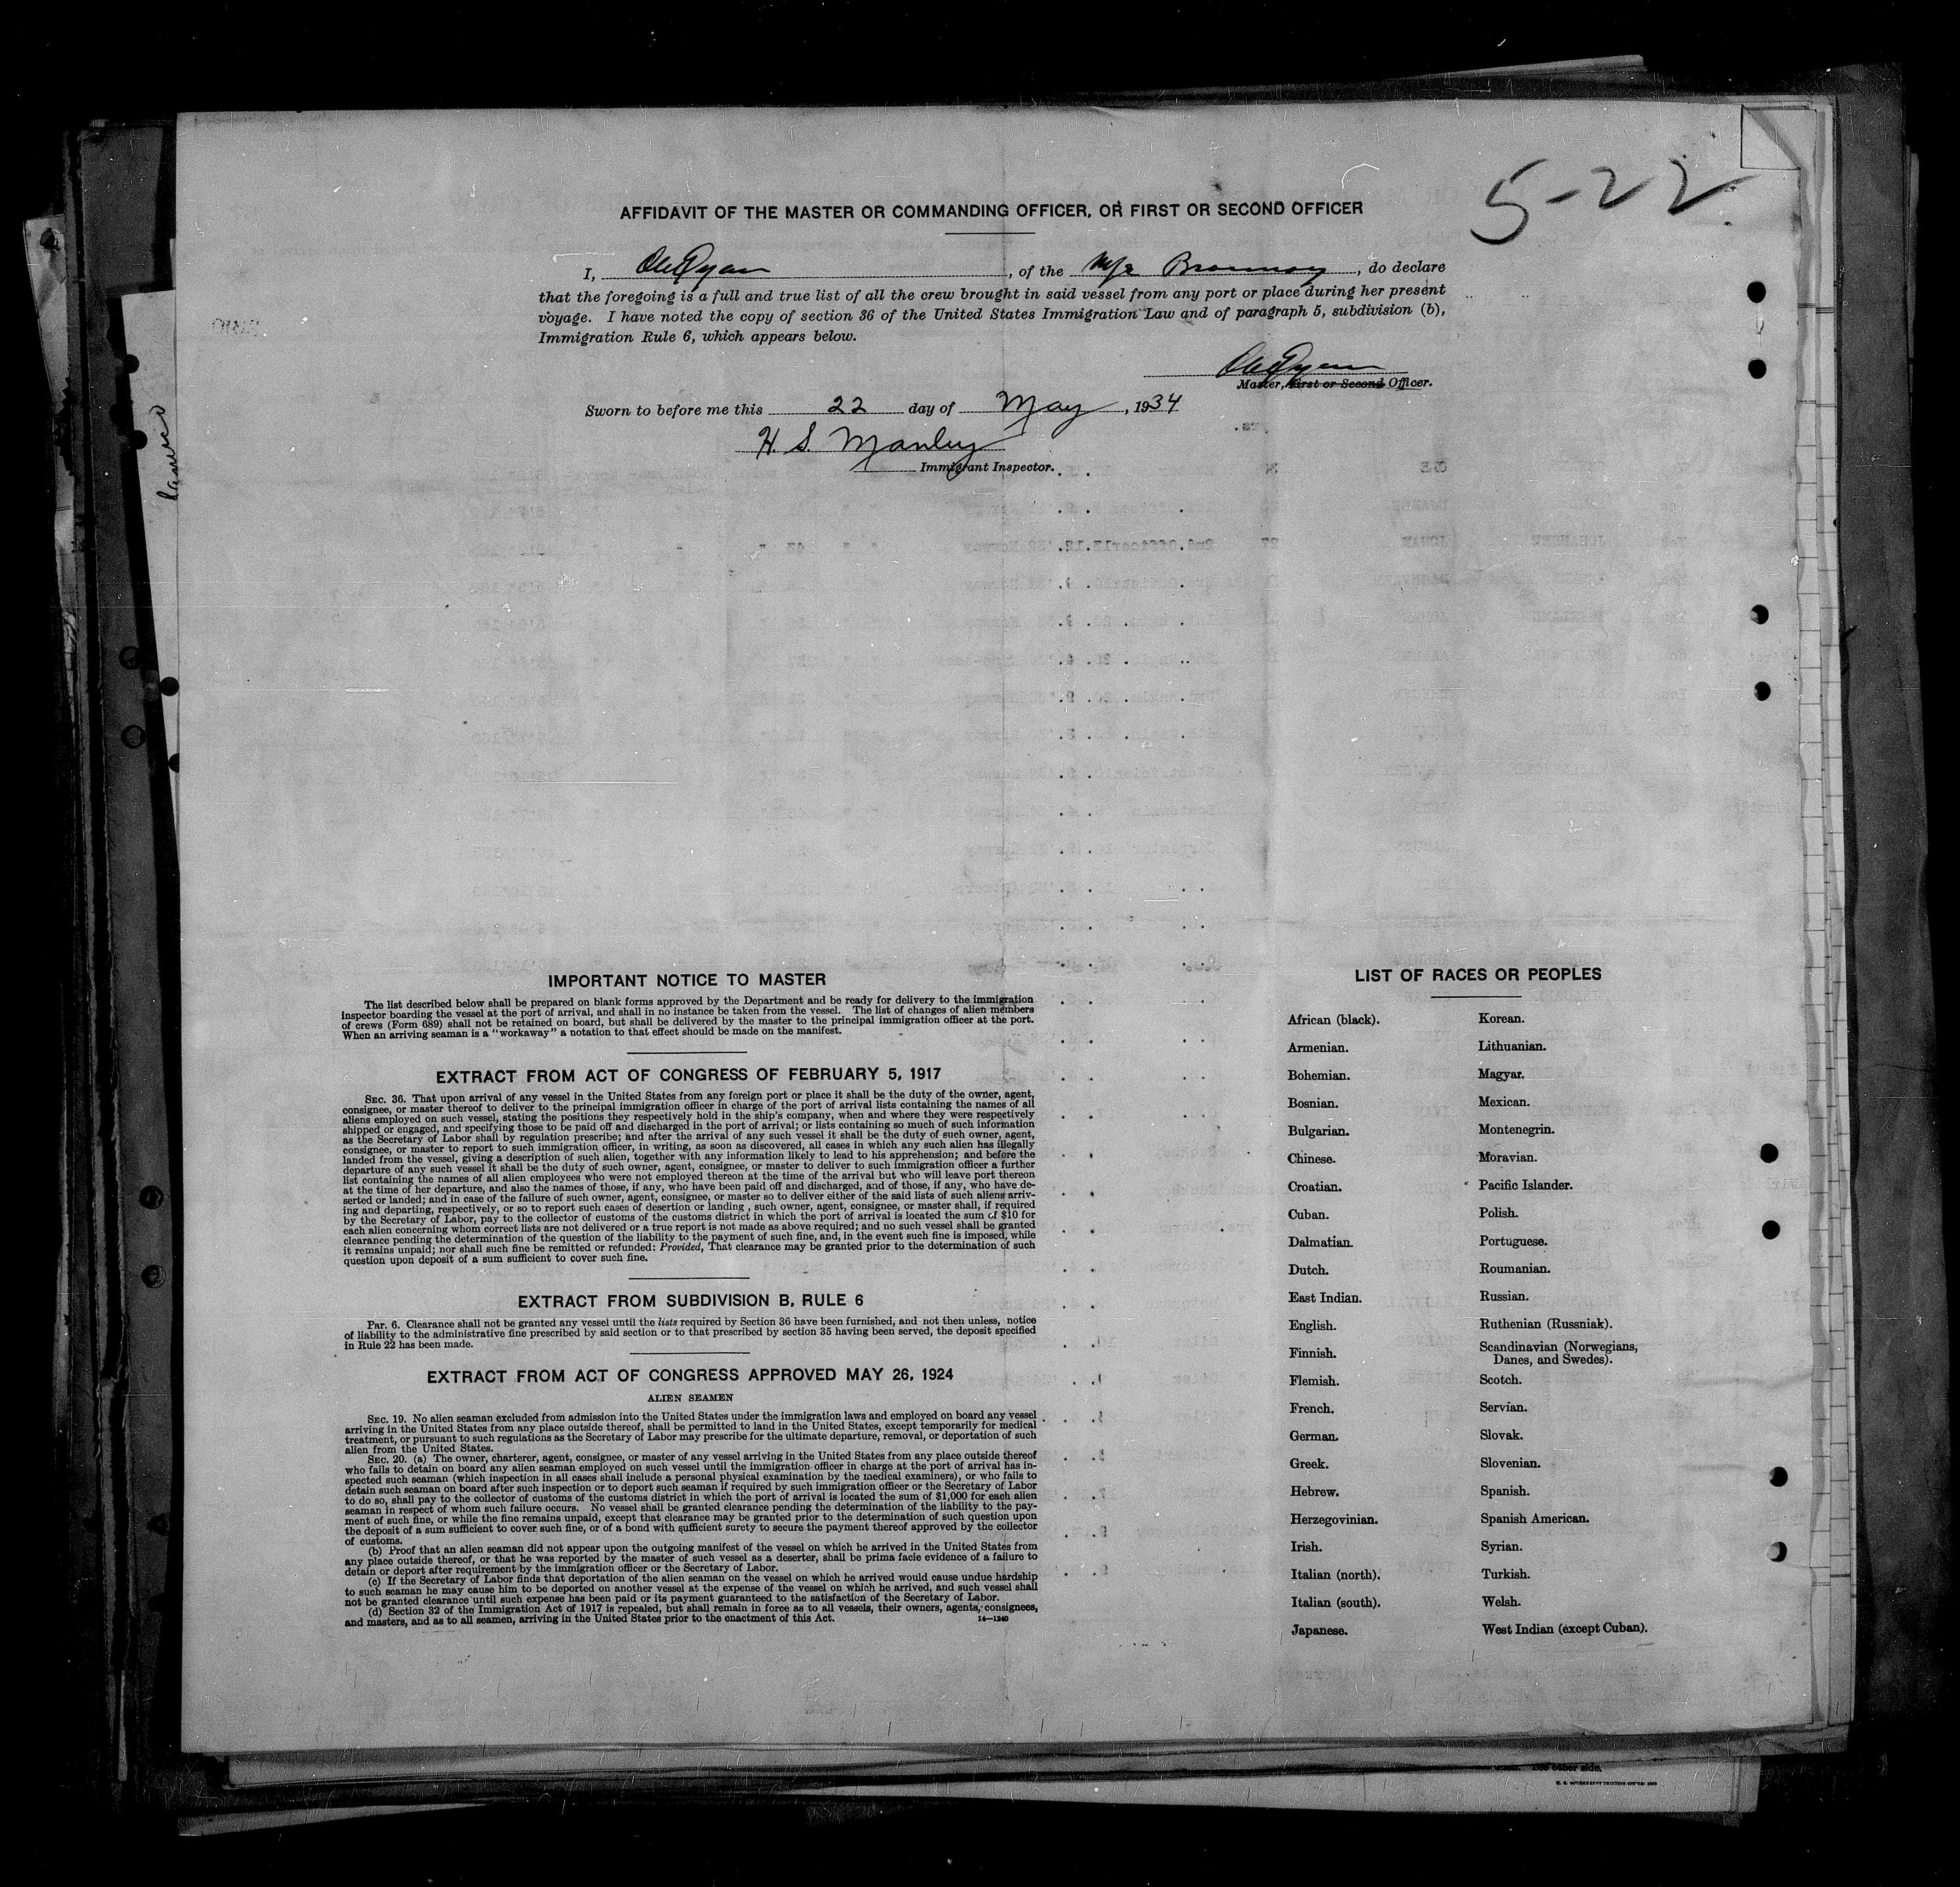 5-22
AFFIDAVIT OF THE MASTER OR COMMANDING OFFICER, OR FIRST OR SECOND OFFICER
I, Ole Dyan, of the M/S Bronnoy, do declare
that the foregoing is a full and true list of all the crew brought in said vessel from any port or place during her present
voyage. I have noted the copy of section 36 of the United States Immigration Law and of paragraph 5, subdivision (b),
Immigration Rule 6, which appears below.
Master, First or Second Officer.
Sworn to before me this 22 day of May, 1934
H. S. Manley
Immigrant Inspector.
IMPORTANT NOTICE TO MASTER
The list described below shall be prepared on blank forms approved by the Department and be ready for delivery to the immigration
inspector boarding the vessel at the port of arrival, and shall in no instance be taken from the vessel. The list of changes of alien members
of crews (Form 689) shall not be retained on board, but shall be delivered by the master to the principal immigration officer at the port.
When an arriving seaman is a "workaway" a notation to that effect should be made on the manifest.
EXTRACT FROM ACT OF CONGRESS OF FEBRUARY 5, 1917
SEC. 36. That upon arrival of any vessel in the United States from any foreign port or place it shall be the duty of the owner, agent,
consignee, or master thereof to deliver to the principal immigration officer in charge of the port of arrival lists containing the names of all
aliens employed on such vessel, stating the positions they respectively hold in the ship's company, when and where they were respectively
shipped or engaged, and specifying those to be paid off and discharged in the port of arrival; or lists containing so much of such information
as the Secretary of Labor shall by regulation prescribe; and after the arrival of any such vessel it shall be the duty of such owner, agent,
consignee, or master to report to such immigration officer, in writing, as soon as discovered, all cases in which any such alien has illegally
landed from the vessel, giving a description of such alien, together with any information likely to lead to his apprehension; and before the
departure of any such vessel it shall be the duty of such owner, agent, consignee, or master to deliver to such immigration officer a further
list containing the names of all alien employees who were not employed thereon at the time of the arrival but who will leave port thereon
at the time of her departure, and also the names of those, if any, who have been paid off and discharged, and of those, if any, who have de-
serted or landed; and in case of the failure of such owner, agent, consignee, or master so to deliver either of the said lists of such aliens arriv-
ing and departing, respectively, or so to report such cases of desertion or landing , such owner, agent, consignee, or master shall, if required
by the Secretary of Labor, pay to the collector of customs of the customs district in which the port of arrival is located the sum of $10 for
each alien concerning whom correct lists are not delivered or a true report is not made as above required; and no such vessel shall be granted
clearance pending the determination of the question of the liability to the payment of such fine, and, in the event such fine is imposed, while
it remains unpaid; nor shall such fine be remitted or refunded: Provided, That clearance may be granted prior to the determination of such
question upon deposit of a sum sufficient to cover such fine.
EXTRACT FROM SUBDIVISION B, RULE 6
PAR. 6. Clearance shall not be granted any vessel until the lists required by Section 36 have been furnished, and not then unless, notice
of liability to the administrative fine prescribed by said section or to that prescribed by section 35 having been served, the deposit specified
in Rule 22 has been made.
EXTRACT FROM ACT OF CONGRESS APPROVED MAY 26, 1924
ALIEN SEAMEN
SEC. 19. No alien seaman excluded from admission into the United States under the immigration laws and employed on board any vessel
arriving in the United States from any place outside thereof, shall be permitted to land in the United States, except temporarily for medical
treatment, or pursuant to such regulations as the Secretary of Labor may prescribe for the ultimate departure, removal, or deportation of such
alien from the United States.
SEC. 20. (a) The owner, charterer, agent, consignee, or master of any vessel arriving in the United States from any place outside thereof
who fails to detain on board any alien seaman employed on such vessel until the immigration officer in charge at the port of arrival has in-
spected such seaman (which inspection in all cases shall include a personal physical examination by the medical examiners), or who fails to
detain such seaman on board after such inspection or to deport such seaman if required by such immigration officer or the Secretary of Labor
to do so, shall pay to the collector of customs of the customs district in which the port of arrival is located the sum of $1,000 for each alien
seaman in respect of whom such failure occurs. No vessel shall be granted clearance pending the determination of the liability to the pay-
ment of such fine, or while the fine remains unpaid, except that clearance may be granted prior to the determination of such question upon
the deposit of a sum sufficient to cover such fine, or of a bond with sufficient surety to secure the payment thereof approved by the collector
of customs.
(b) Proof that an alien seaman did not appear upon the outgoing manifest of the vessel on which he arrived in the United States from
any place outside thereof, or that he was reported by the master of such vessel as a deserter, shall be prima facie evidence of a failure to
detain or deport after requirement by the immigration officer or the Secretary of Labor.
(c) If the Secretary of Labor finds that deportation of the alien seaman on the vessel on which he arrived would cause undue hardship
to such seaman he may cause him to be deported on another vessel at the expense of the vessel on which he arrived, and such vessel shall
not be granted clearance until such expense has been paid or its payment guaranteed to the satisfaction of the Secretary of Labor.
(d) Section 32 of the Immigration Act of 1917 is repealed, but shall remain in force as to all vessels, their owners, agents, consignees,
and masters, and as to all seamen, arriving in the United States prior to the enactment of this Act.
14—1240
LIST OF RACES OR PEOPLES
African (black).
Armenian.
Bohemian.
Bosnian.
Bulgarian.
Chinese.
Croatian.
Cuban.
Dalmatian.
Dutch.
East Indian.
English.
Finnish.
Flemish.
French.
German.
Greek.
Hebrew.
Herzegovinian.
Irish.
Italian (north).
Italian (south).
Japanese.
Korean.
Lithuanian.
Magyar.
Mexican.
Montenegrin.
Moravian.
Pacific Islander.
Polish.
Portuguese.
Roumanian.
Russian.
Ruthenian (Russniak).
Scandinavian (Norwegians,
Danes, and Swedes).
Scotch.
Servian.
Slovak.
Slovenian.
Spanish.
Spanish American.
Syrian.
Turkish.
Welsh.
West Indian (except Cuban).
See other side.